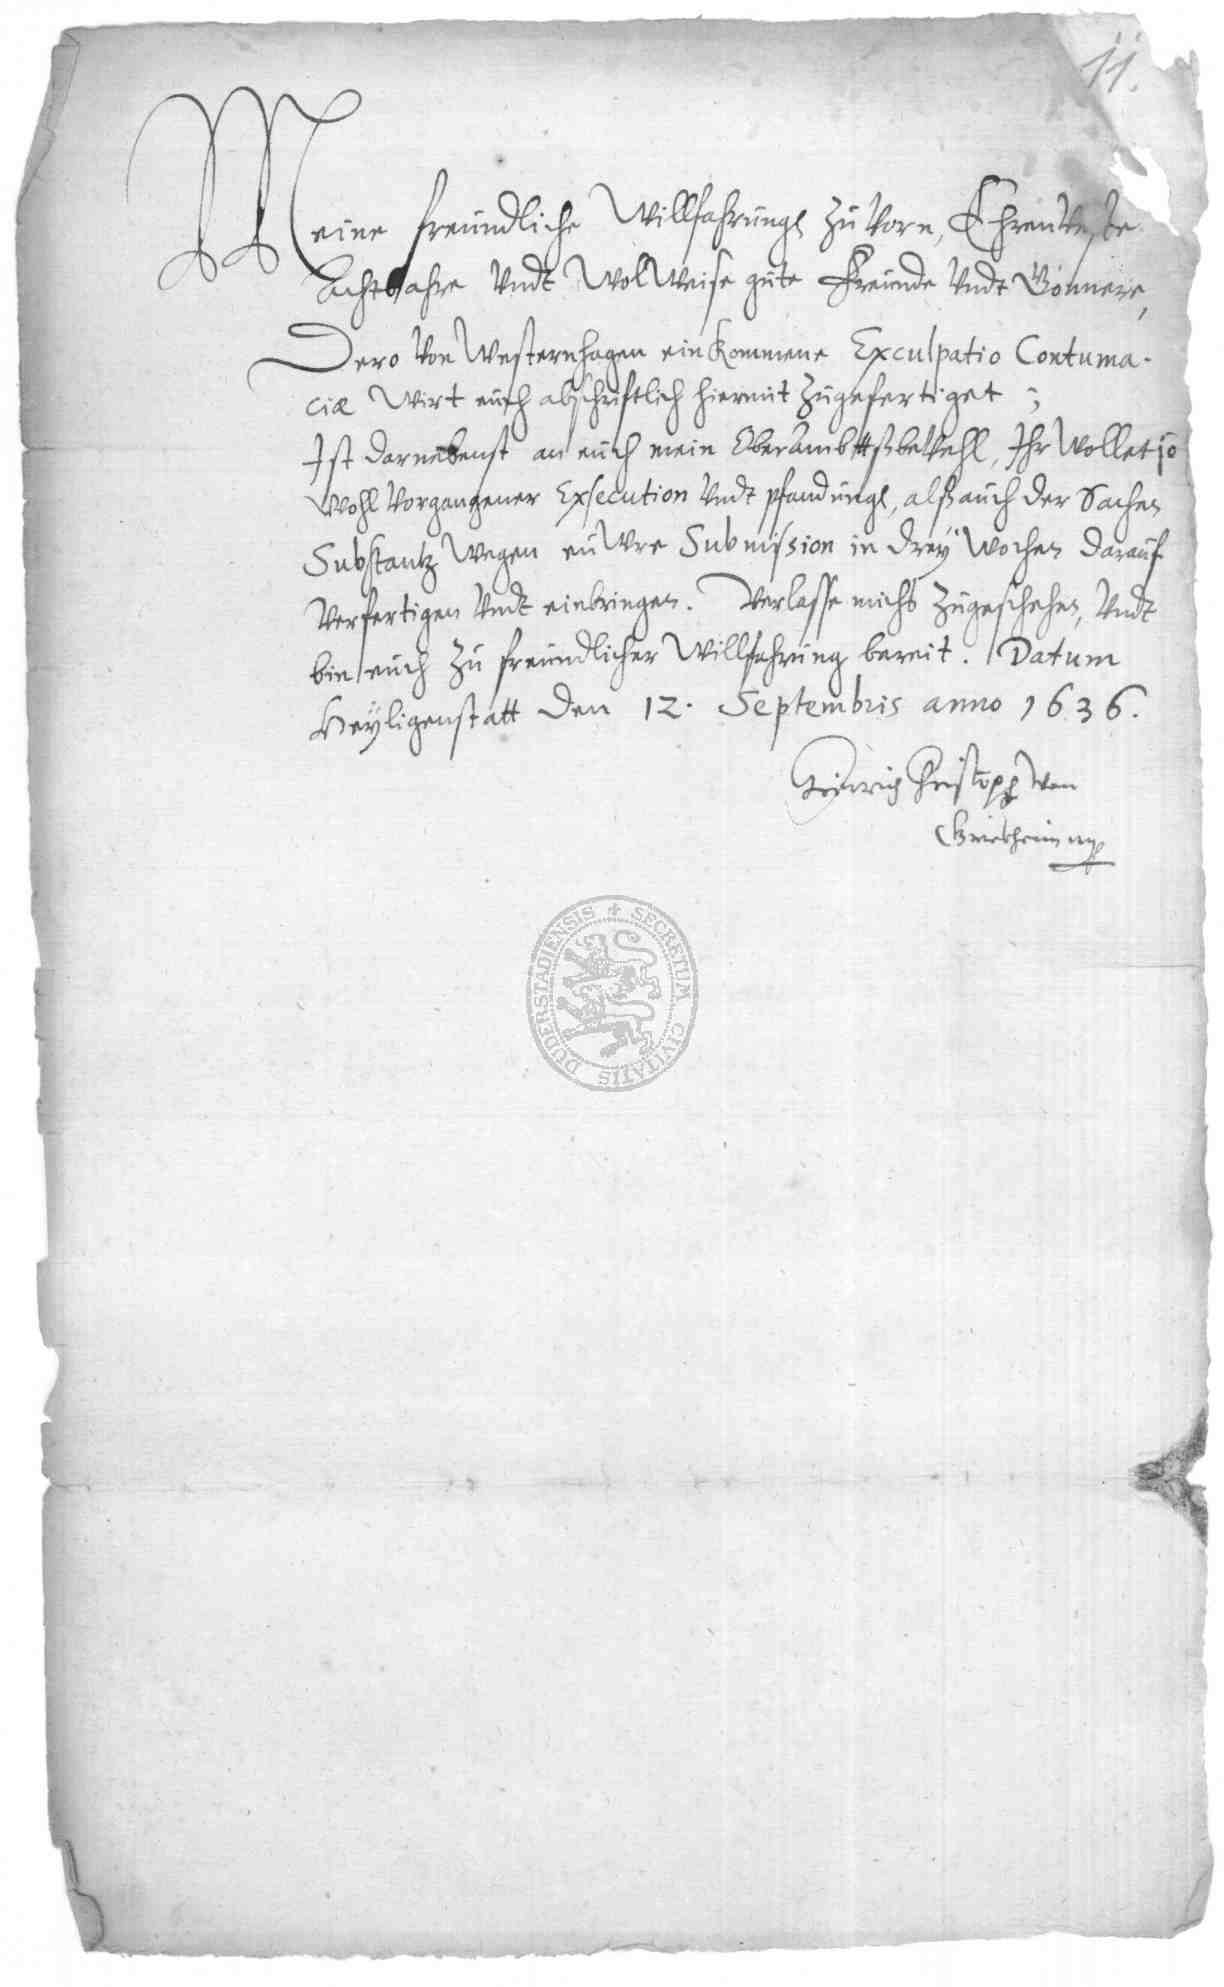 11.
Meine freundliche Willfahrungs zuvorn, Ehrnveste
Achtbahre Undt Wolweise gute Freunde Undt Gönnere,
Dero Von Westernhagen einkommene Exculpatio Contuma-
ciæ Wirt euch abschriftlich hiermit zugefertiget;
Ist darnebenst an euch mein OberAmbttsbevehl, Ihr Wollet so
Wohl Vorgangener Exsecution Undt pfandungs, alß auch der Sachen
Substantz Wegen euwre Submission in drey Wochen darauf
Verfertigen Undt einbringen. Verlasse michs zugeschehen, Undt
bin euch zu freundlicher Willfahrung bereit. Datum
Heyligenstatt den 12. Septembris anno 1636.
Heinrich Christoph von
Griesheim mp
SECRETUM CIVITATIS DUDERSTADIENSIS